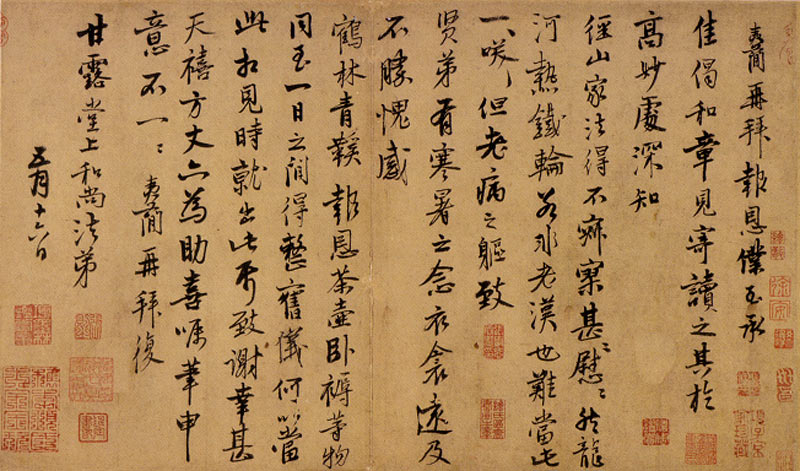 夷簡再拜報恩僕至承
佳偈和章見寄讀之其於
高妙處深知
徑山家法得不寂寥甚〻慰〻然龍
河熱鐵輪若非老漢也難當此
一咲但老病之軀致
賢弟有寒暑之念衣衾遠及
不勝愧感
鶴林青鞵報恩茶壺卧褥等物
同至一日之間得整舊儀何以當
此相見時就出此致謝幸甚
天禧方丈亦為助喜囑筆申
意不一〻 夷簡再拜復
甘露堂上和尚法弟
五月十六日